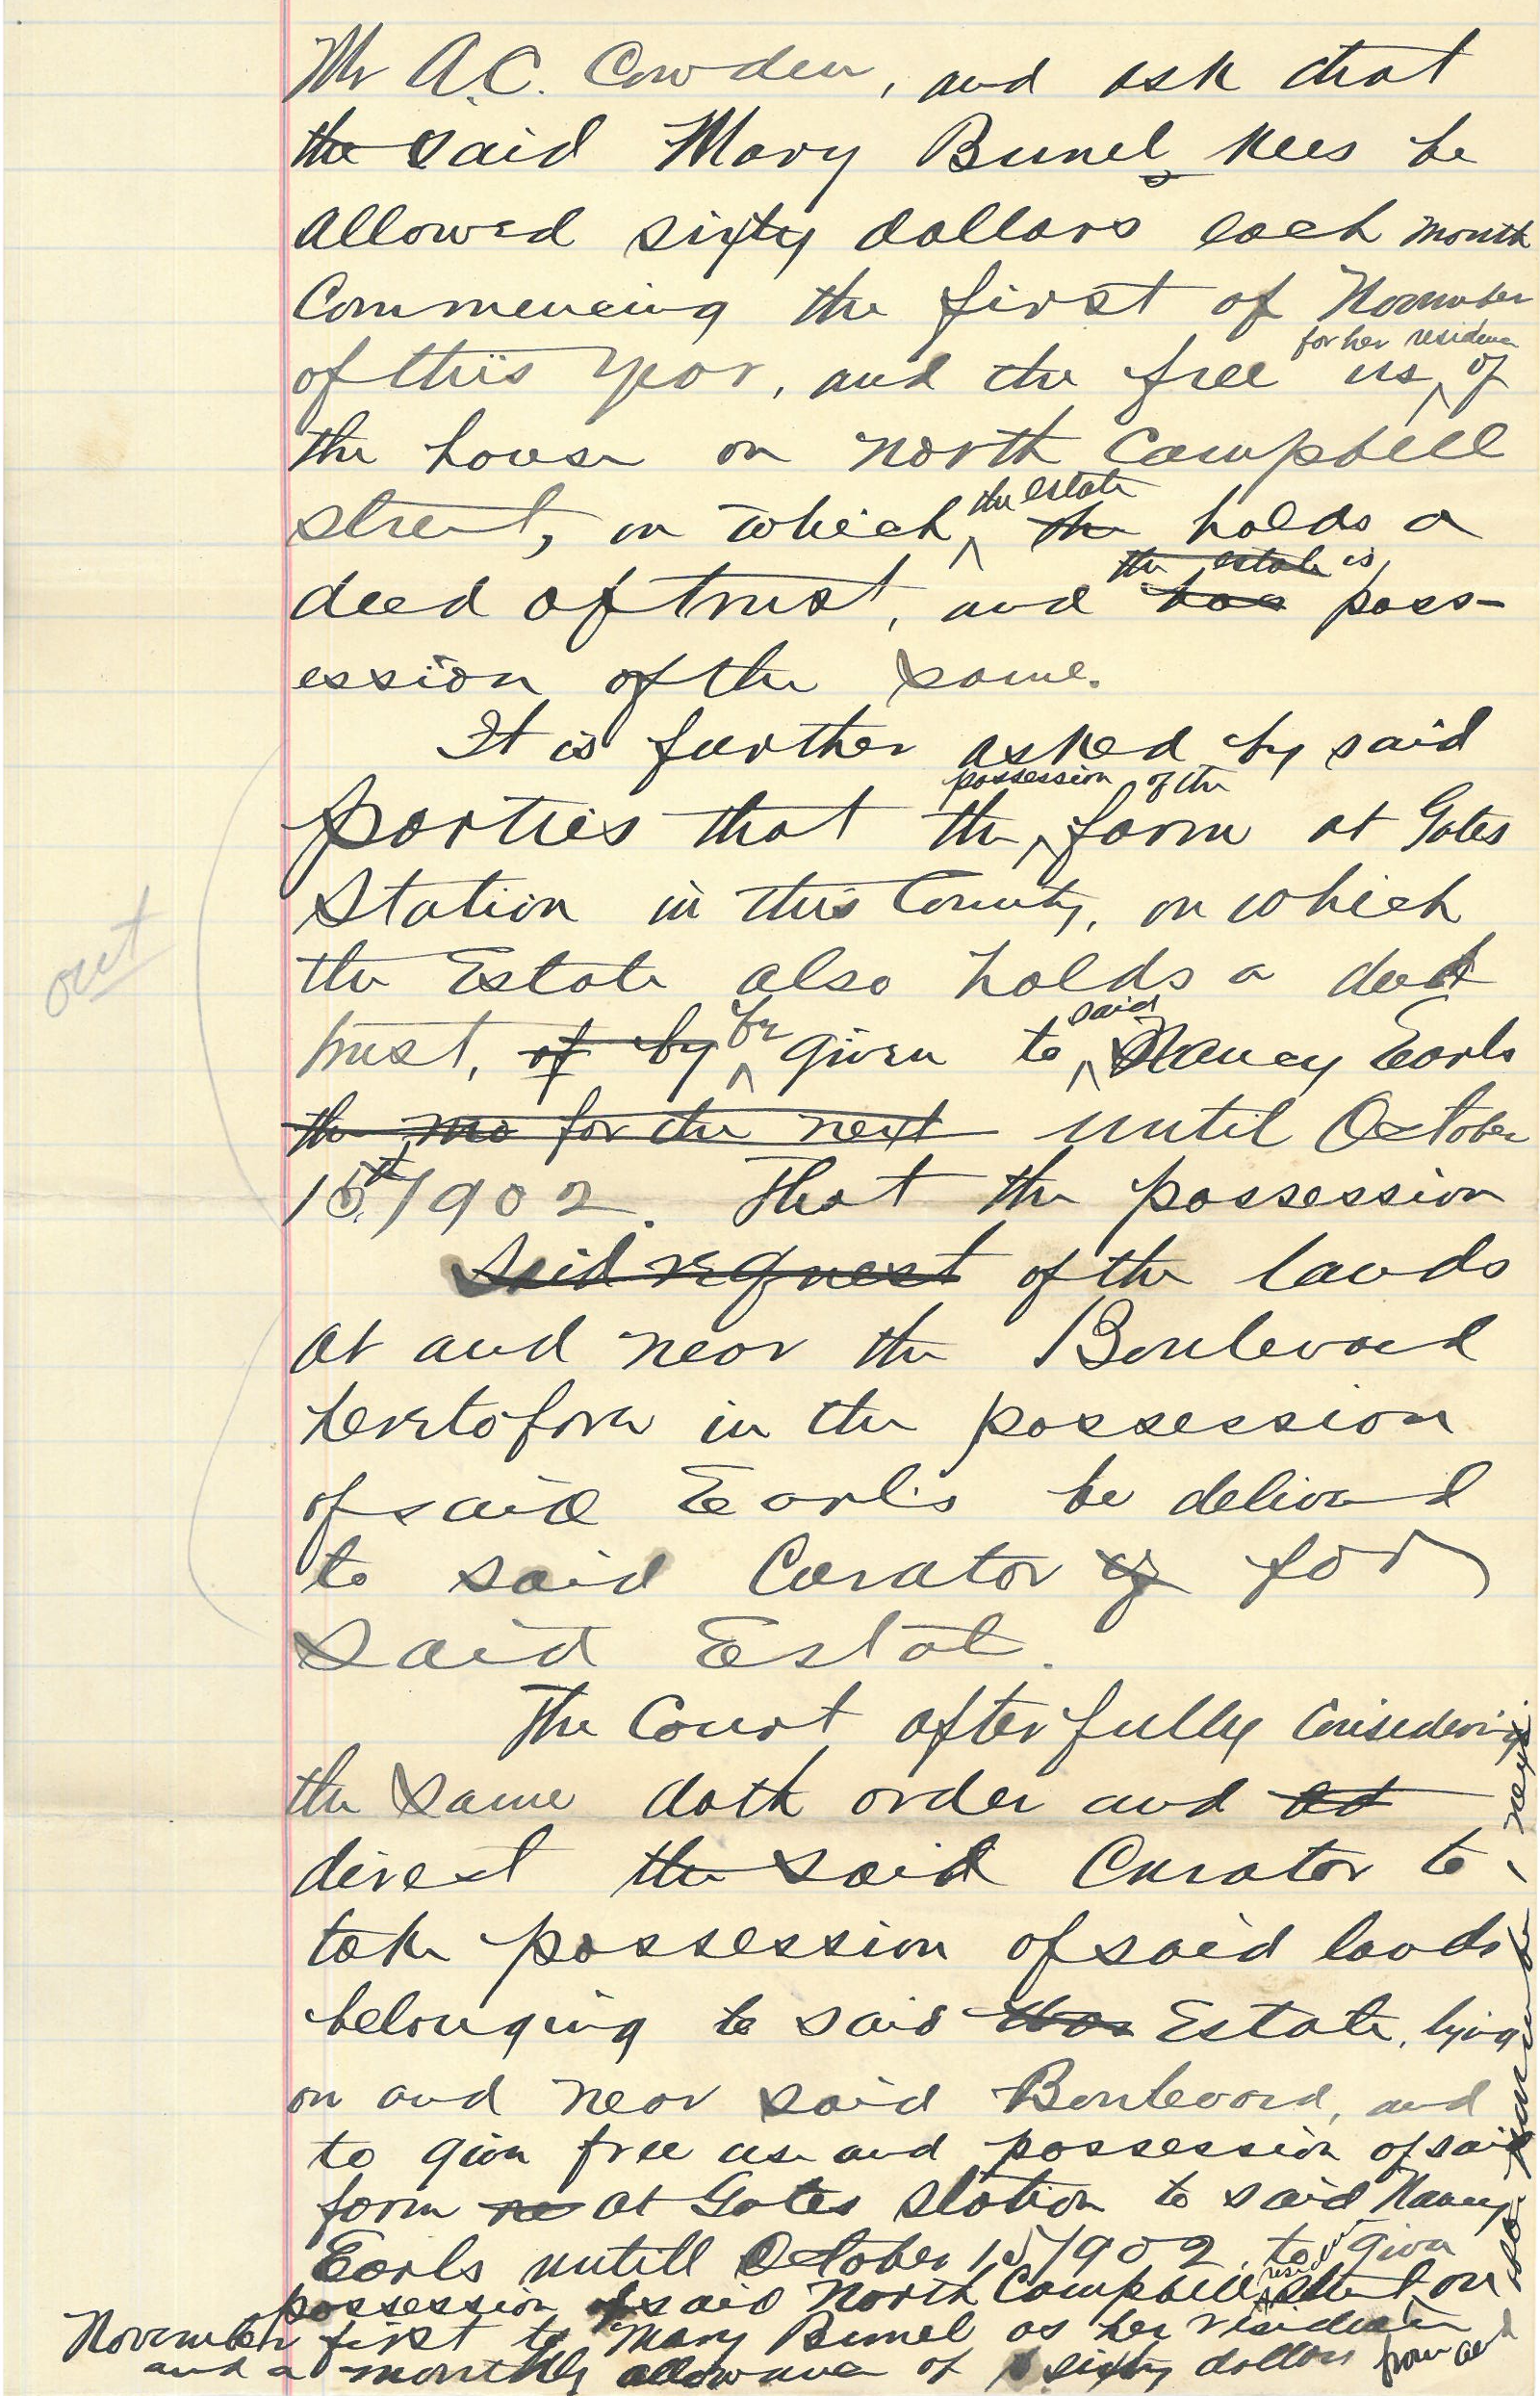 Mr A.C. Cowden, and ask that
the said Mary Bunel Kees be
allowed sixty dollars each month
Commencing the first of November
for her residence
of this year, and the free us of
the house on North Campbell
the estate
street, on which the holds a
the estate is
deed of trust, and has poss-
ession of the same.
It is further asked by said
possession of the
parties that the farm at Gates
Station in this County, on which
out
the Estate also holds a deed
said
trust, of by be given to Nancy Earls
the mo for the next until October
15th 1902. That the possession
Said request of the lands
at and near the Boulevard
heretofore in the possession
of said Earls be delivered
to said Curator of for
said Estat.
The Court after fully Considering
the same doth order and
direct the said Curator to
take possession of said lands
belonging to said Estate, lying
on and near said Boulevard, and
to give free use and possession of said
farm at Gates Station to said Nancy
Earls untill October 15 1902. to give
possession of said North Campbell street on
November first to Mary Bunel as her residence
and a monthly allowance of sixty dollars from and
next